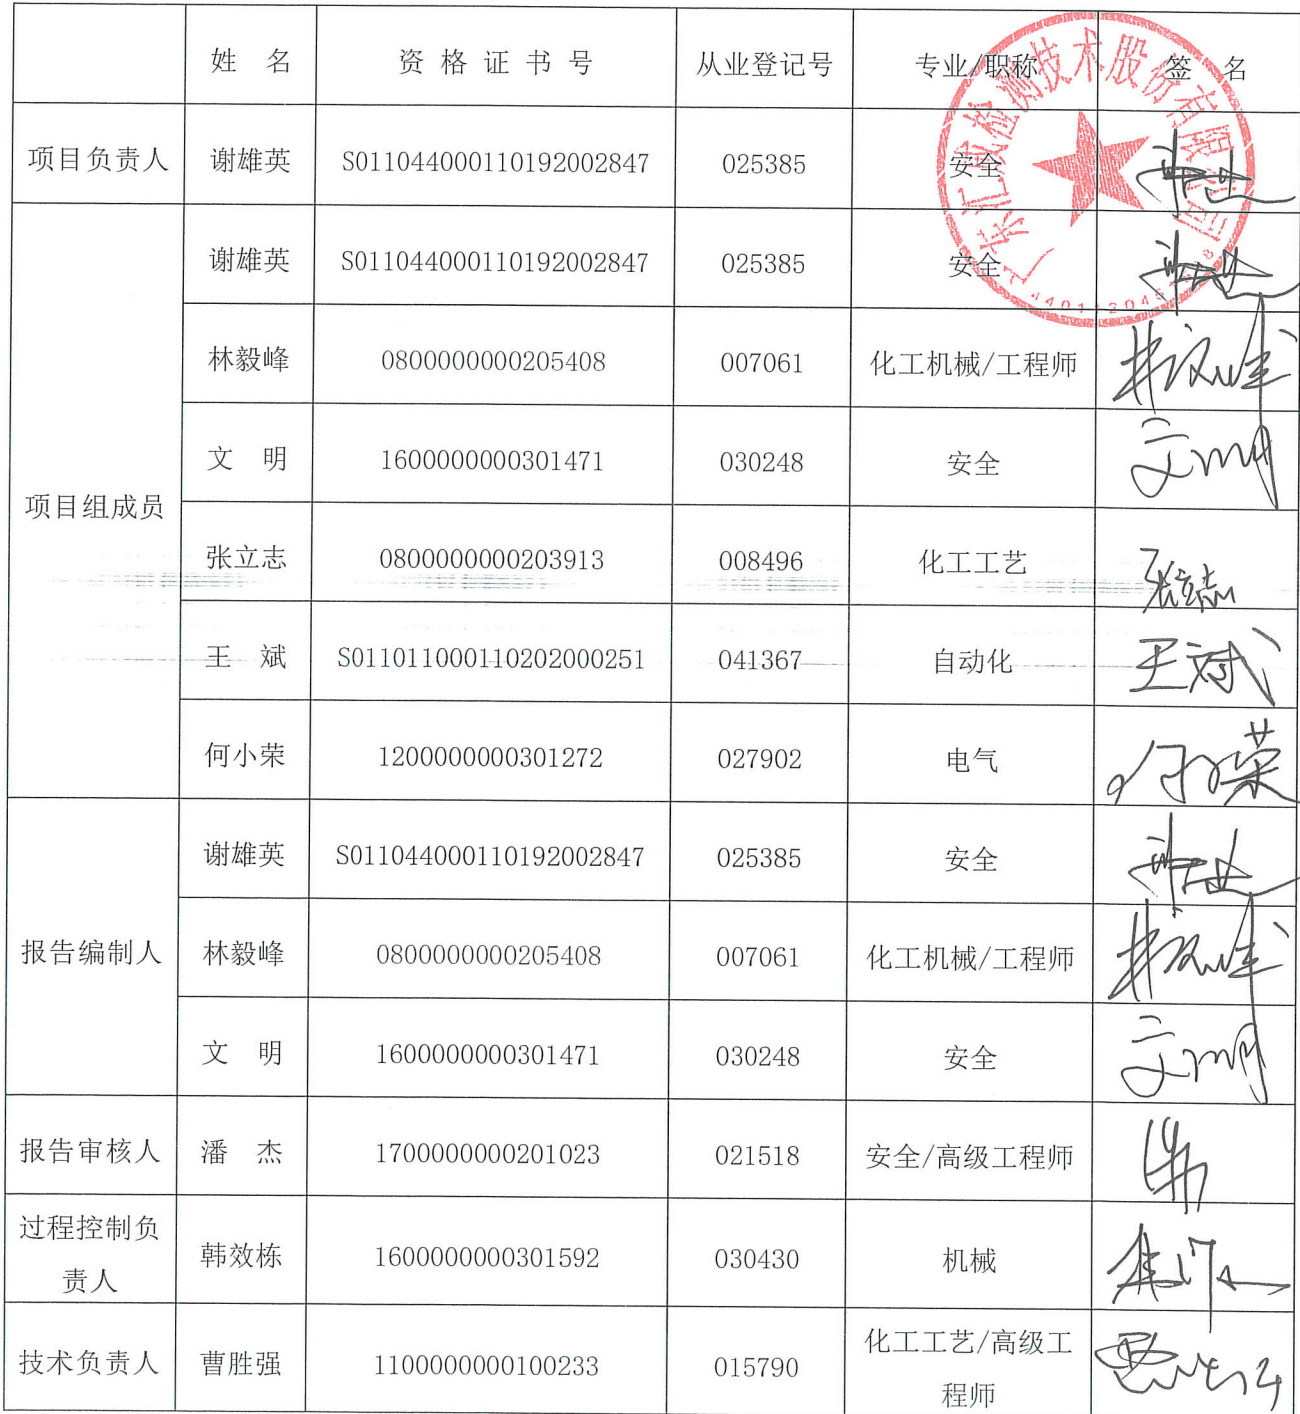 姓 名 资 格 证 书 号 从业登记号 专业/职称 签 名
项目负责人 谢雄英 S011044000110192002847 025385 安全
项目组成员
谢雄英 S011044000110192002847 025385 安全
林毅峰 0800000000205408 007061 化工机械/工程师 林毅峰
文 明 1600000000301471 030248 安全 文明
张立志 0800000000203913 008496 化工工艺 张立志
王 斌 S011011000110202000251 041367 自动化 王斌
何小荣 1200000000301272 027902 电气 何小荣
报告编制人
谢雄英 S011044000110192002847 025385 安全
林毅峰 0800000000205408 007061 化工机械/工程师 林毅峰
文 明 1600000000301471 030248 安全 文明
报告审核人 潘 杰 1700000000201023 021518 安全/高级工程师
过程控制负
责人
韩效栋 1600000000301592 030430 机械
技术负责人 曹胜强 1100000000100233 015790
化工工艺/高级工
程师
广东汇成检测技术股份有限公司